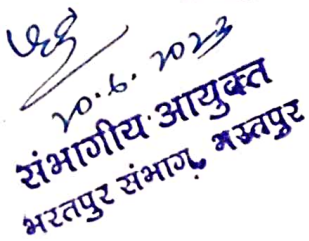 20.6.2023
संभागीय आयुक्त
भरतपुर संभाग, भरतपुर